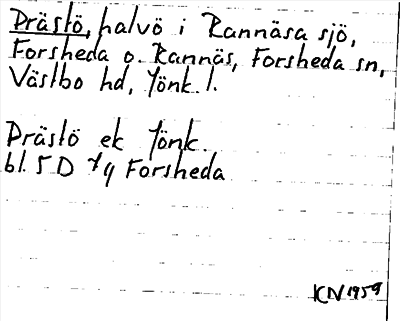 Prästö, halvö i Rannäsa sjö,
Forsheda o. Rannäs, Forsheda sn,
Västbo hd, Jönk. l.
Prästö ek Jönk.
bl. 5 D 7g Forsheda
KN 1959